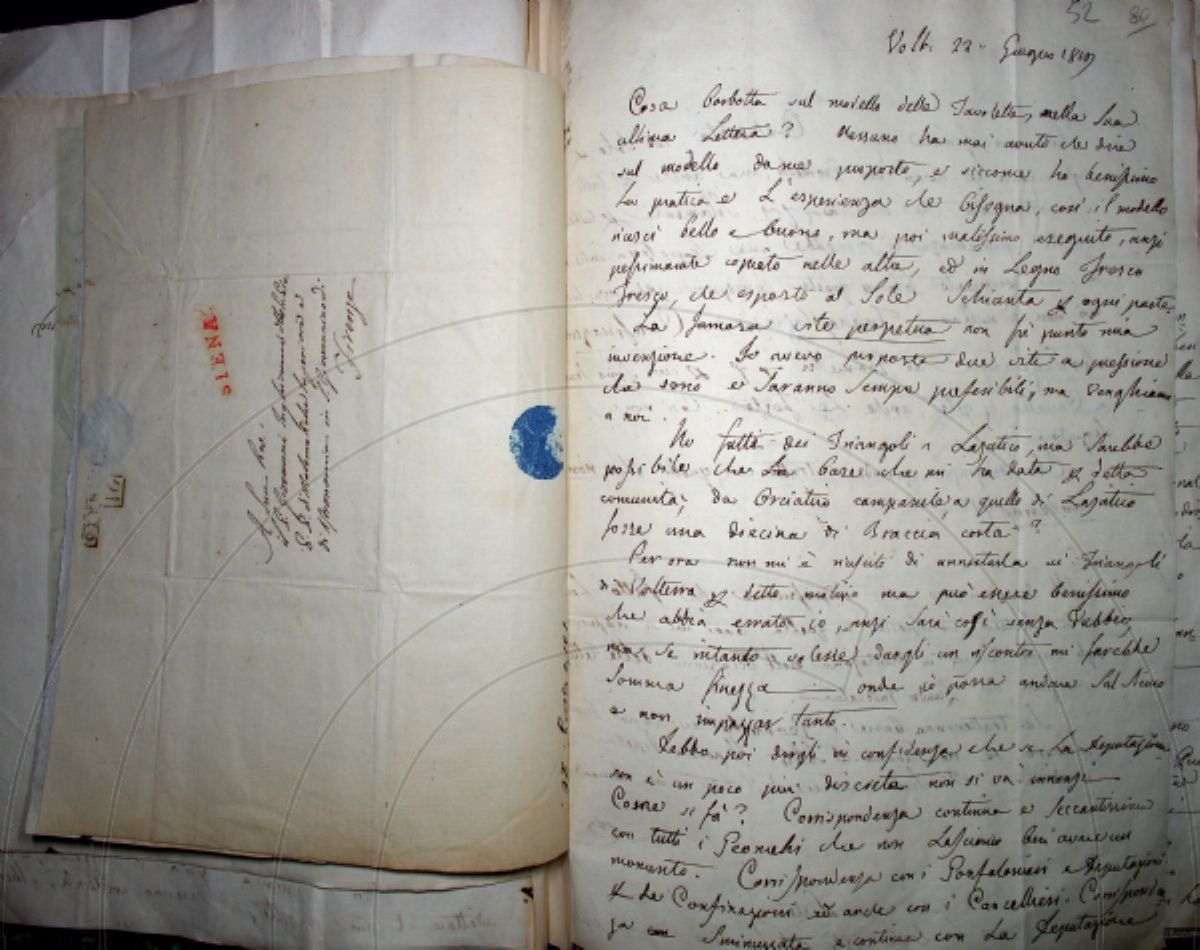 SIENA
A Sua Rev.
Il P. Giovanni Inghirami delle
Scuole Pie
di Astronomia in
Firenze
52 80
Volt. 22. Giugno 1819
Cosa borbotta sul modello delle Tavolette, nella Sua
ultima Lettera? Nessuno ha mai avuto che dire
sul modello da me proposto, e siccome ho benissimo
La pratica e L'esperienza che bisogna, così il modello
riuscì bello e buono, ma poi malissimo eseguito, anzi
pessimamente copiato nelle altre, ed in Legno fresco
fresco, che esposto al Sole Schianta p ogni parte.
La famosa vite perpetua non fù punto mia
invenzione. Io avevo proposte due viti a pressione
che sono e Saranno Sempre preferibili, ma venghiamo
a noi.
Ho fatti dei Triangoli a Lajatico, ma Sarebbe
possibile che La base che mi ha data p detta
comunità, da Orciatico campanile, a quello di Lajatico
fosse una diecina di Braccia corta?
Per ora non mi è riuscito di annettarla ai Triangoli
di Volterra p detto motivo ma può essere benissimo
che abbia errato io, anzi Sarà così senza dubbio,
ma se intanto volesse dargli un riscontro mi farebbe
Somma finezza — onde io possa andare Sul Sicuro
e non impazzar tanto.
Debbo poi dirgli in confidenza che se La Deputazione
non è un poco più discreta non si và innanzi —
Come si fà? Corrispondenza continua e Seccantissima
con tutti i Geometri che non Lasciano ben avere un
momento. Corrispondenza con i Gonfalonieri e Deputazioni
p Le Confinazioni ed anche con i Cancellieri. Corrisponden
za Sminuzzata e continua con La Deputazione